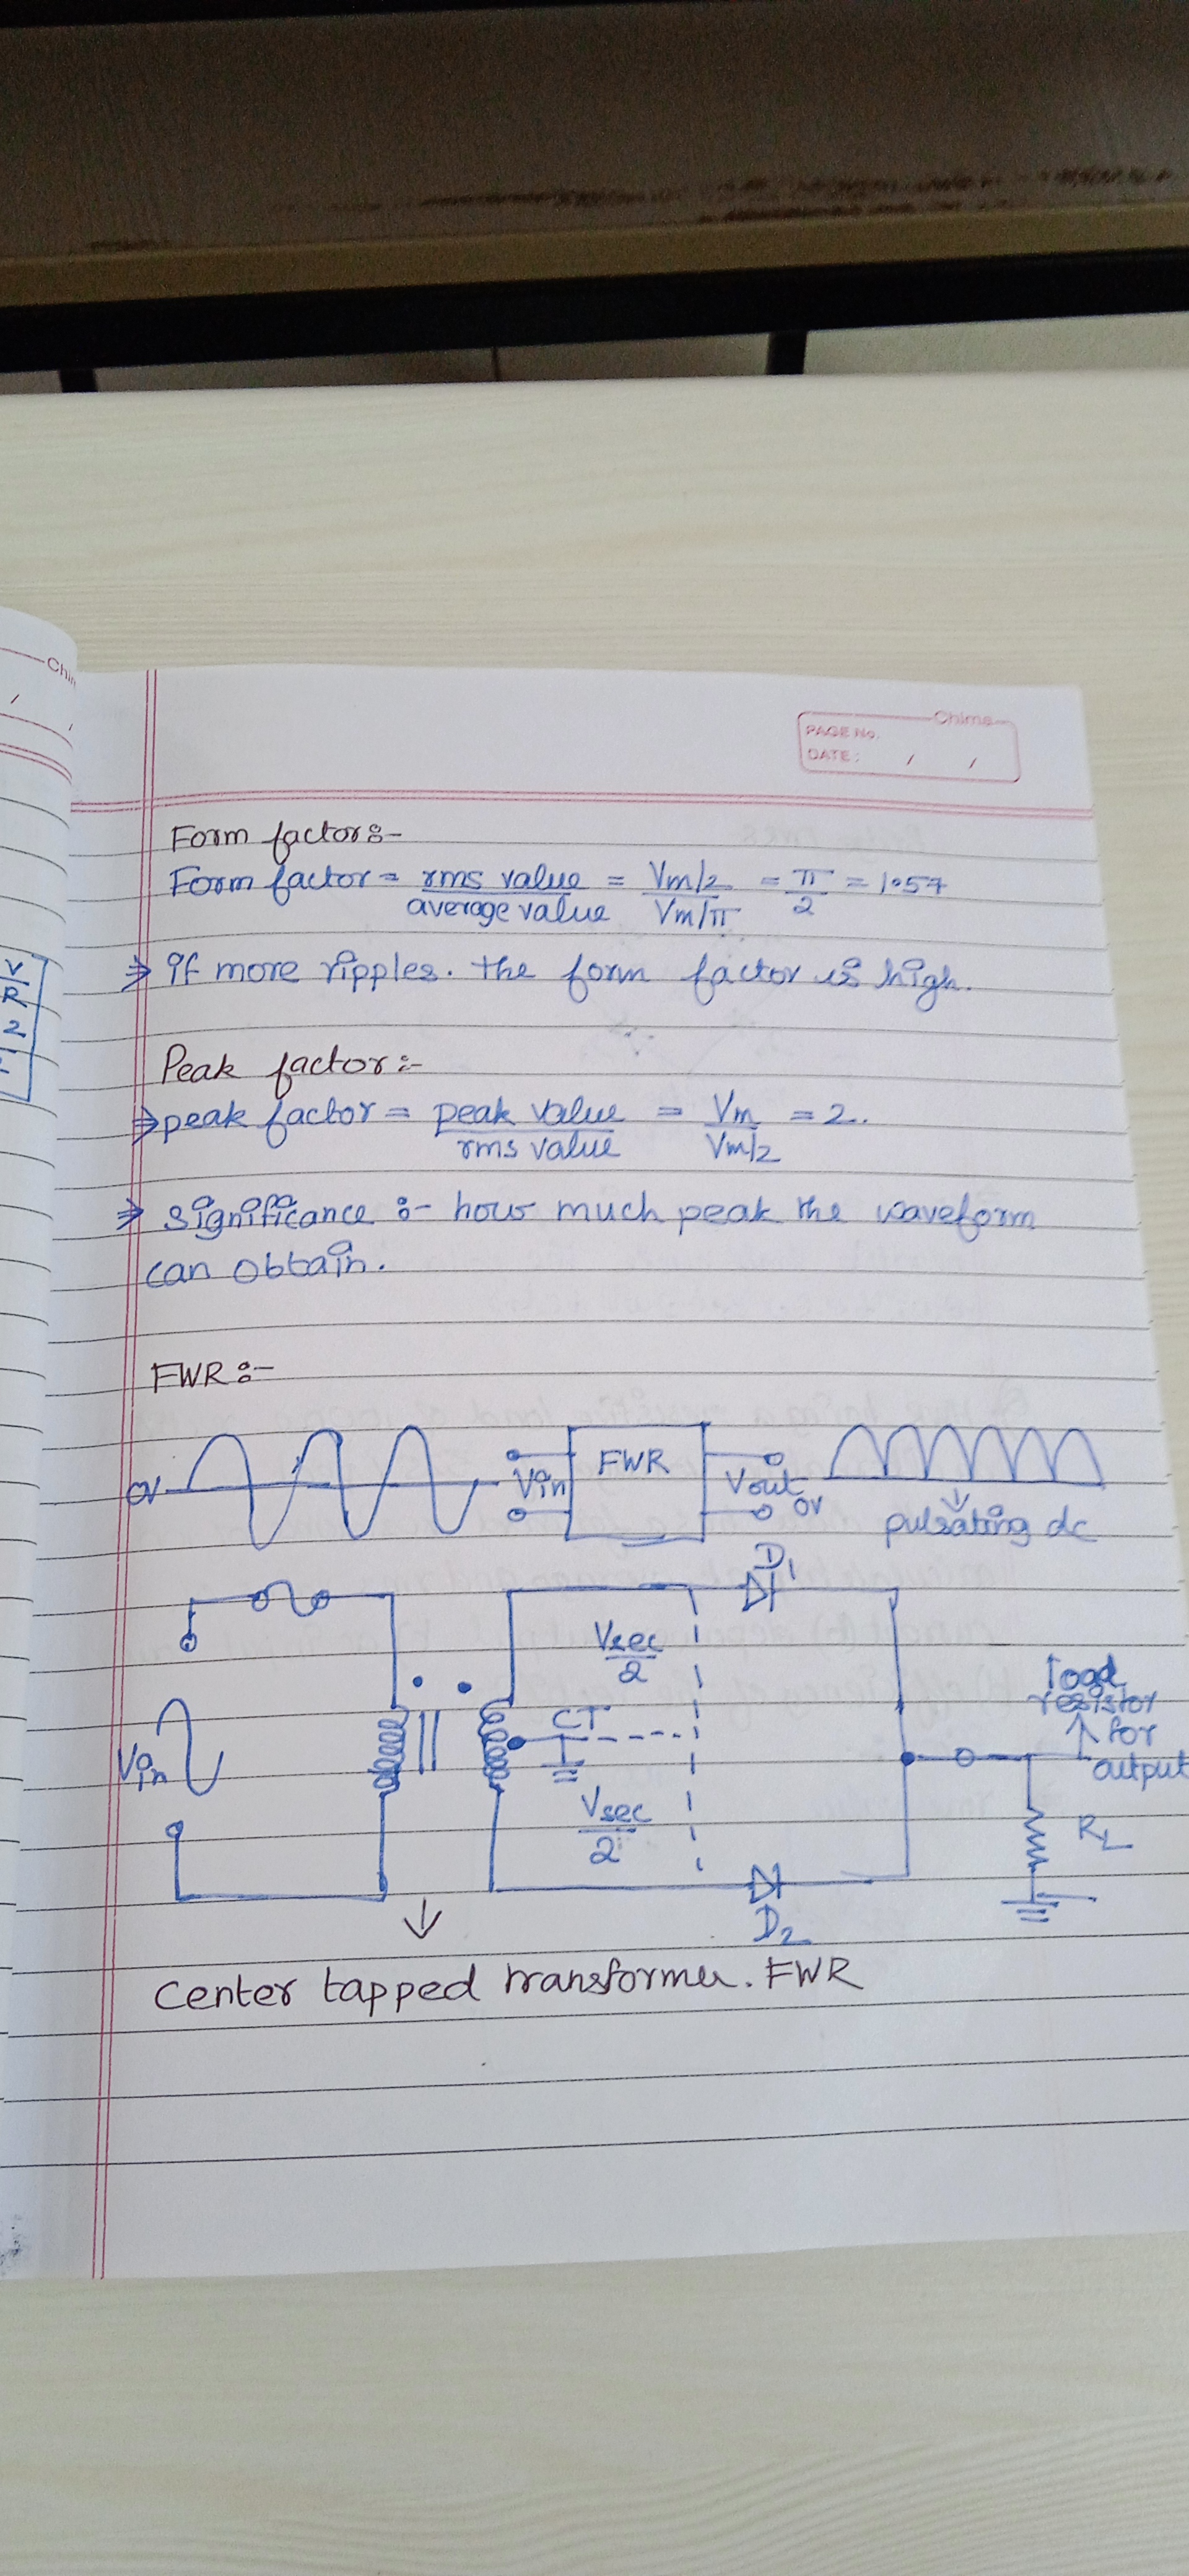 Chi
/ /
Chima
PAGE No.
DATE: / /
Form factor:-
Form factor = rms value / average value = Vm/2 / Vm/π = π/2 = 1.57
⇒ if more ripples. the form factor is high.
V
R
2
Peak factor:-
⇒ peak factor = peak value / rms value = Vm / Vm/2 = 2..
⇒ significance :- how much peak the waveform
can obtain.
FWR :-
0V Vin FWR Vout 0V
pulsating dc
D1
Vsec/2
load
resistor
for
output
CT
Vin
Vsec/2
RL
D2
Center tapped transformer. FWR